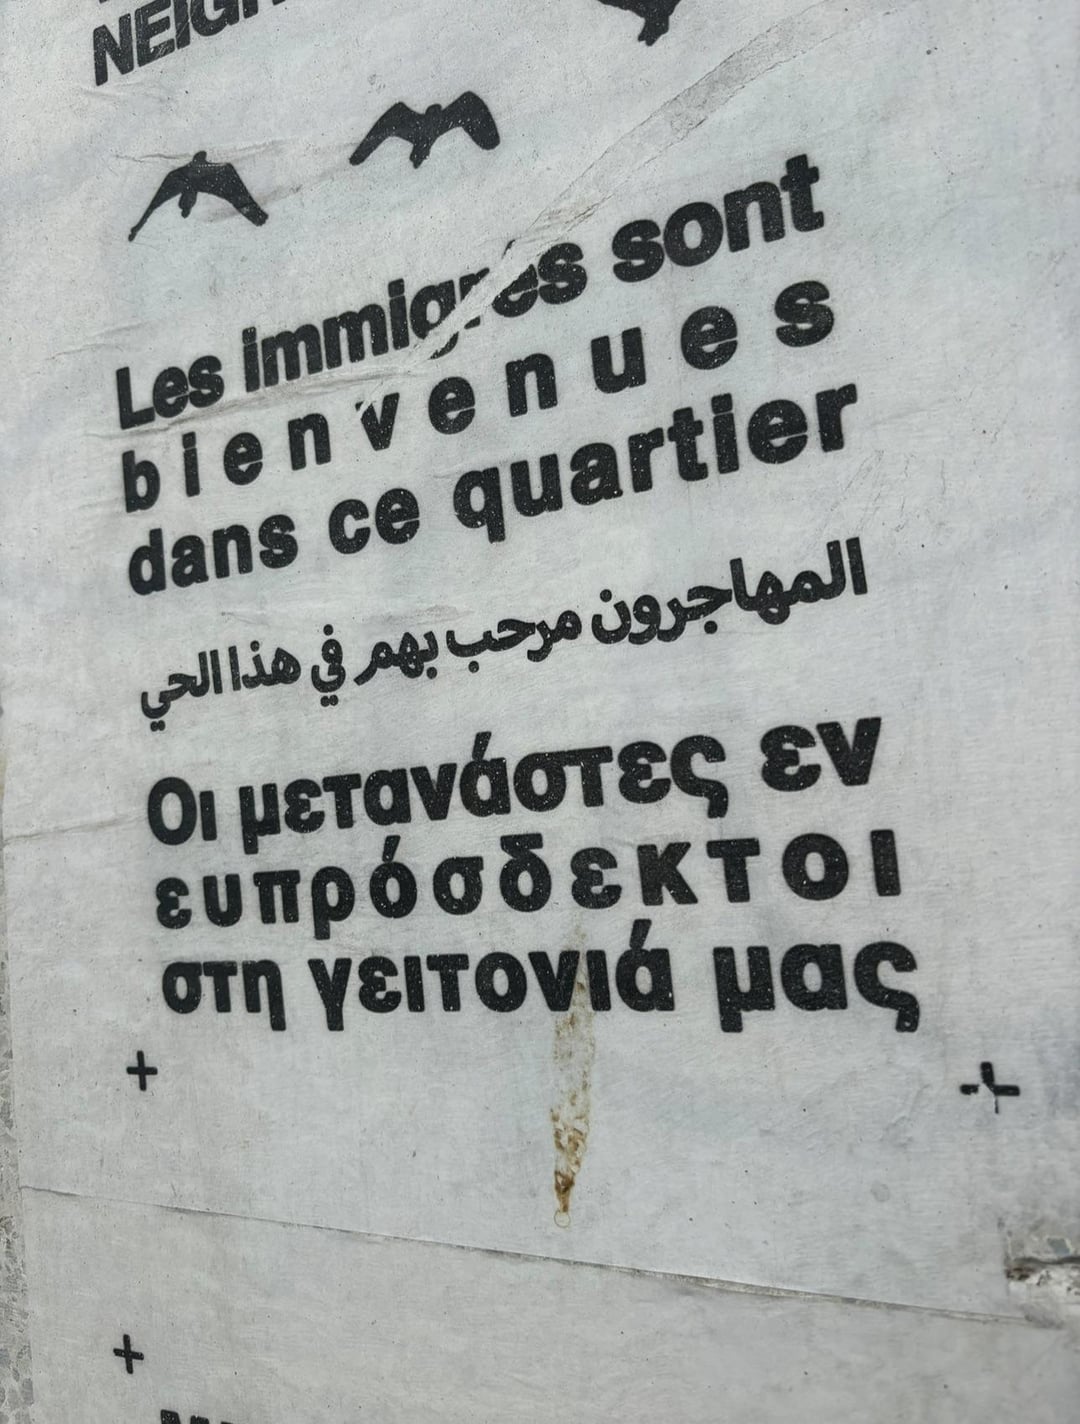 Les immigrés sont
bienvenues
dans ce quartier
المهاجرون مرحب بهم في هذا الحي
Οι μετανάστες εν
ευπρόσδεκτοι
στη γειτονιά μας